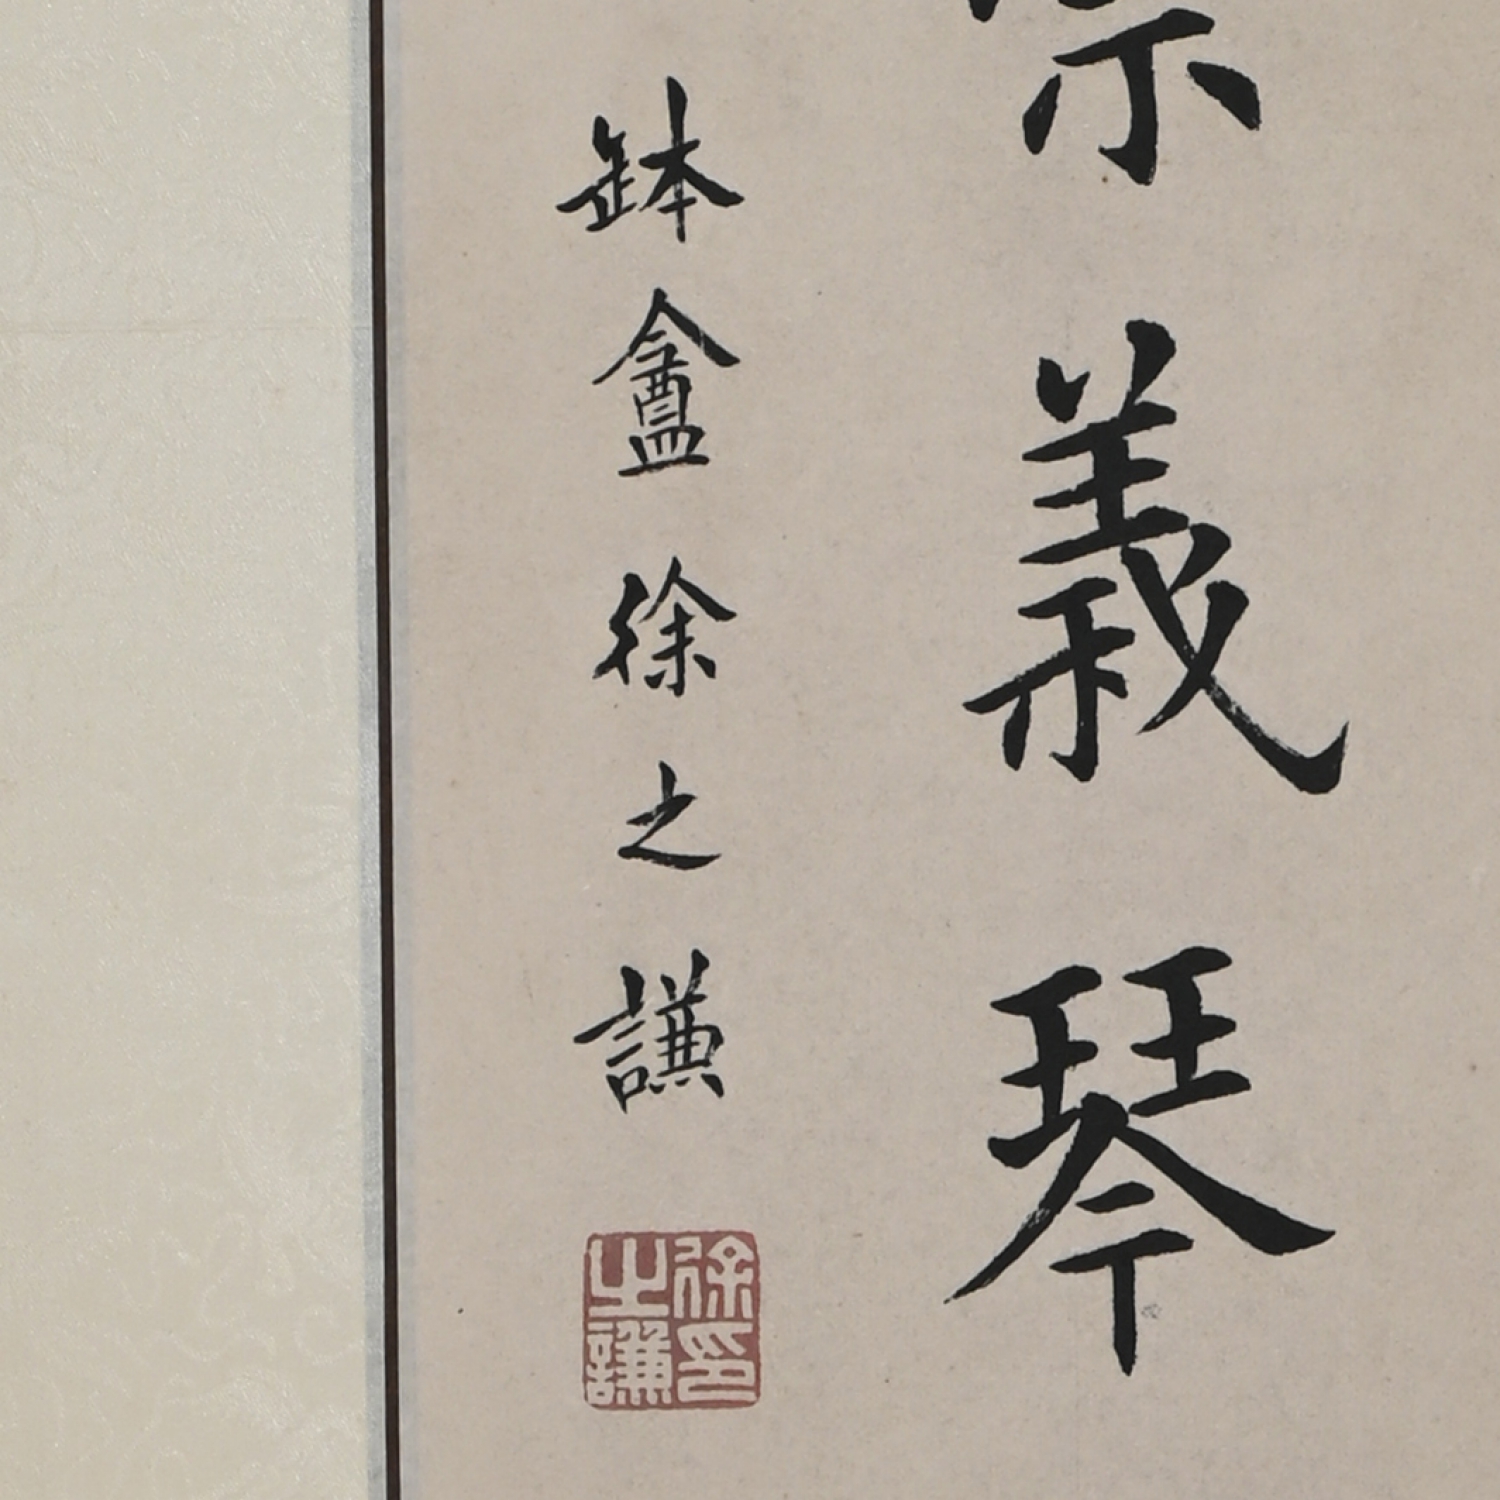 義琴
缽盦徐之謙
徐之謙印